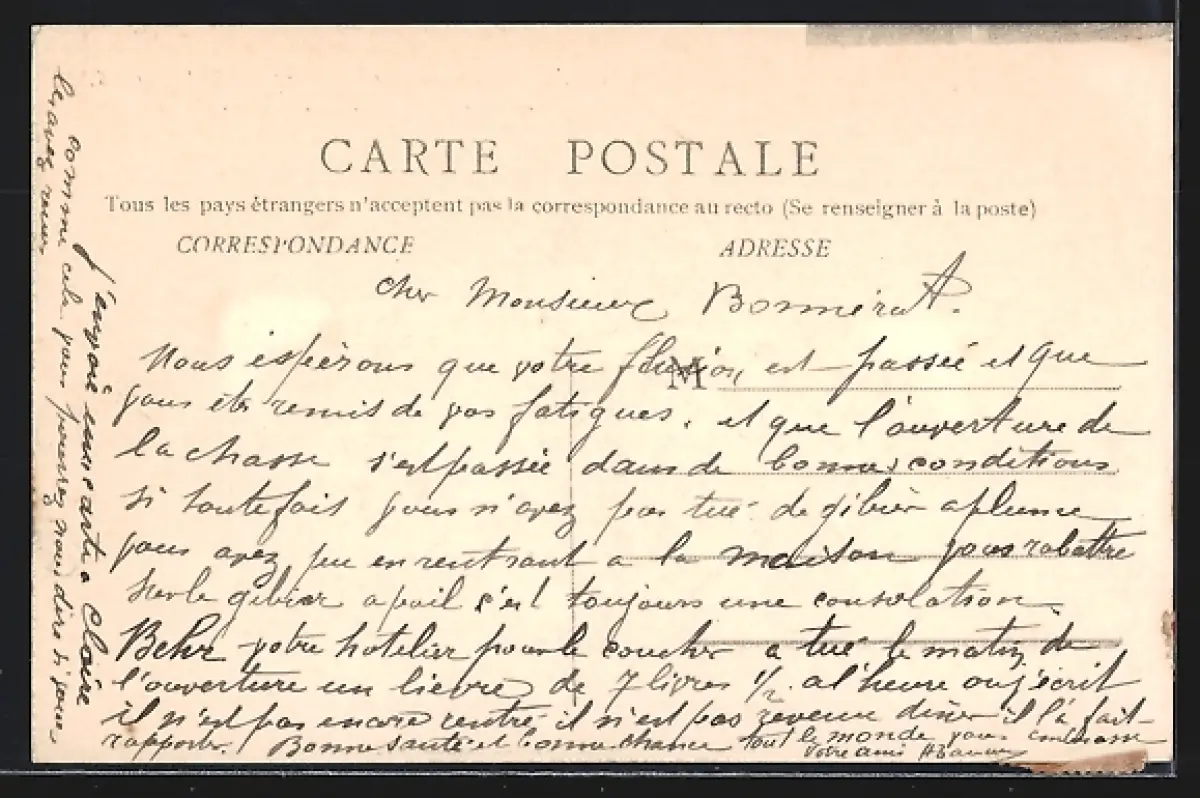 CARTE POSTALE
Tous les pays étrangers n'acceptent pas la correspondance au recto (Se renseigner à la poste)
CORRESPONDANCE
ADRESSE
M
cher Monsieur Bonnérat.
Nous espérons que votre fluxion est passée et que
vous ete remis de vos fatigues. et que l'ouverture de
la chasse s'est passée dans de bonnes conditions
si toutefois vous n'avez pas tué de gibier a plume
vous avez pu en rentrant a la maison vous rabattre
sur le gibier a poil c'est toujours une consolation
Behr votre hotelier pour le coucher a tué le matin de
l'ouverture un lievre de 7 livres 1/2. a l'heure ou j'écrit
il n'est pas encore rentré il n'est pas revenu diner il l'a fait
rapporter. Bonne santé et bonne chance tout le monde vous embrasse
votre ami
j'envoie une carte a Claire
comme cela vous pourrez nous dire si vous
les avez reçues